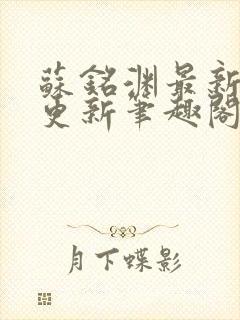 蘇銘淵最新
更新筆趣閣
月下蝶影